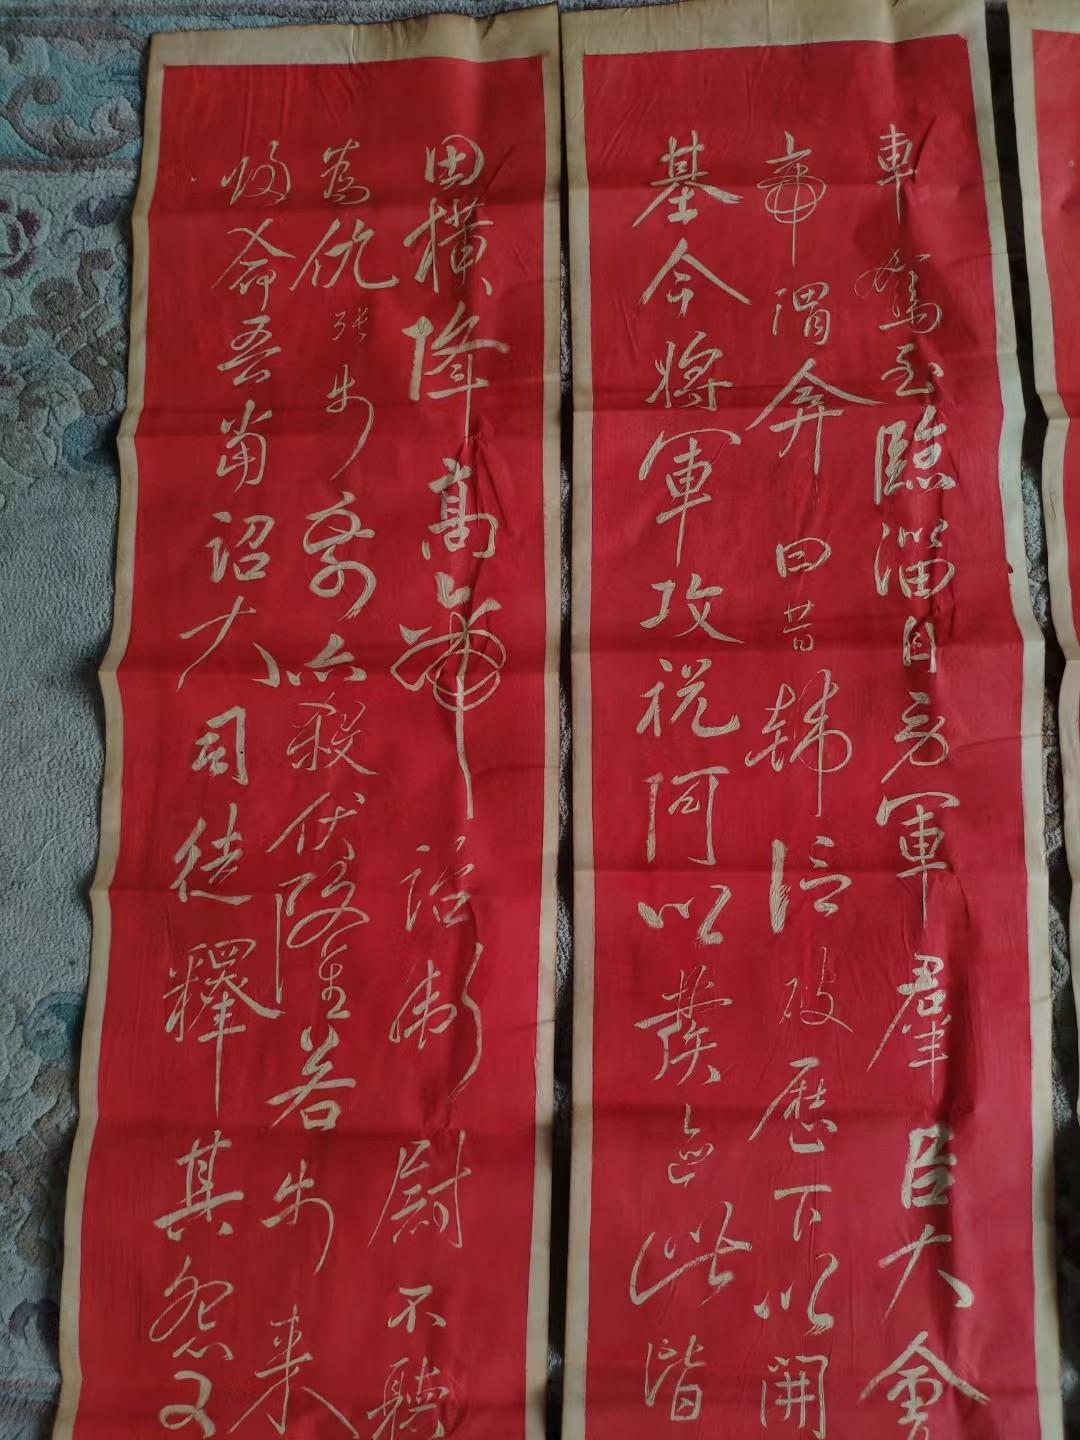 車駕至臨淄自勞軍羣臣大會
帝謂弇曰昔韓信破歷下以開
基今將軍攻祝阿以發迹此皆
田橫降高帝詔衛尉不聽
為仇張步前亦殺伏隆若步来
歸命吾當詔大司徒釋其怨又